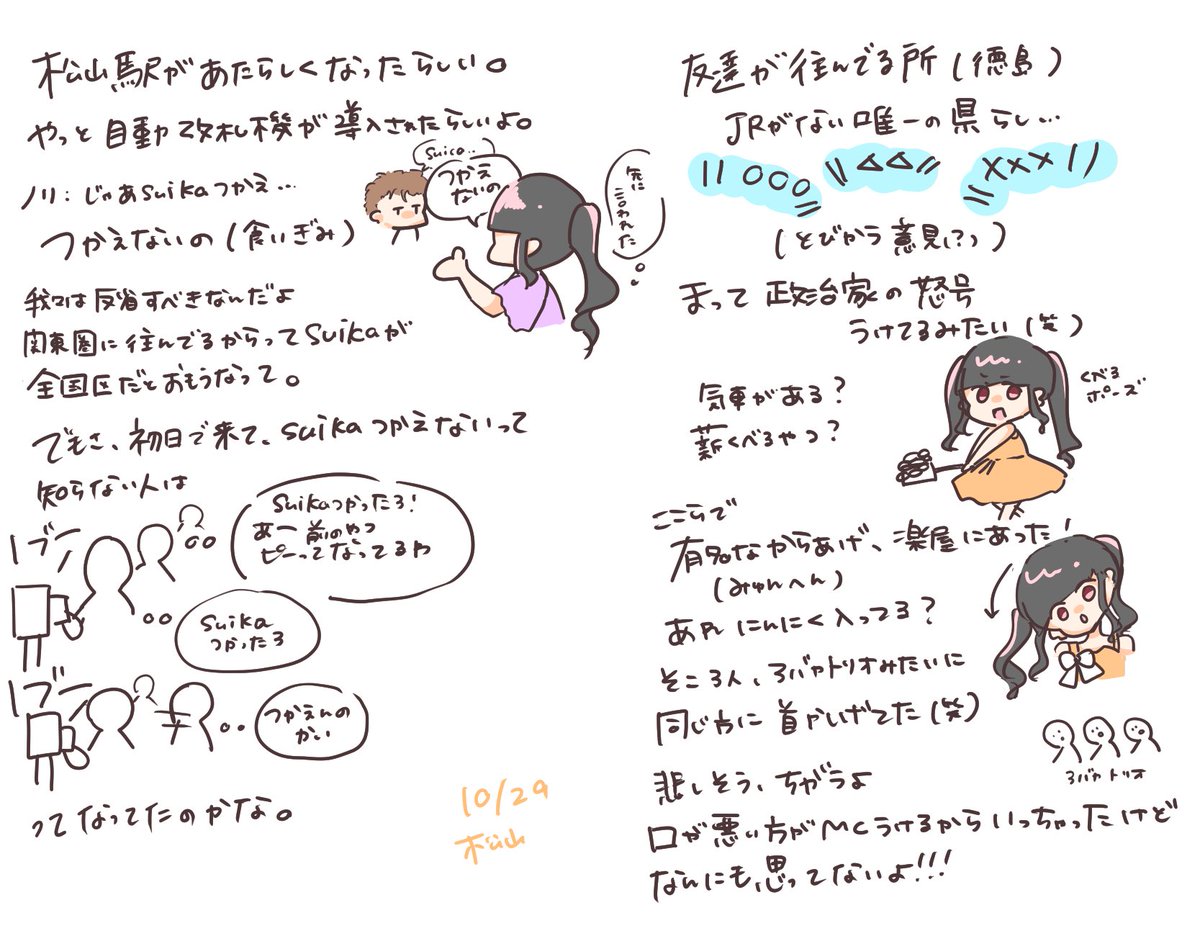 松山駅があたらしくなったらしい。
やっと自動改札機が導入されたらしいよ。
ノリ:じゃあsuikaつかえ…
つかえないの(食いぎみ)
suica..
つかえ
ないの
先に
言われた
我々は反省すべきなんだよ
関東圏に住んでるからってsuikaが
全国区だとおもうなって。
でもさ、初日で来て、suikaつかえないって
知らない人は
ブー
suikaつかったろ!
あー前のやつ
ピーってなってるわ
suika
つかったろ
ブー
つかえんの
かい
ってなってたのかな。
10/29
松山
友達が住んでる所(徳島)
JRがない唯一の県らし…
\\○○○〃
\\△△〃
\\×××//
(とびかう意見(?))
まって政治家の怒号
うけてるみたい(笑)
気車がある?
薪くべるやつ?
くべる
ポーズ
ここらで
有名なからあげ、楽屋にあった!
(みゅんへん)
あれにんにく入ってる?
そこ3人、3バカトリオみたいに
同じ方に首かしげてた(笑)
3バカトリオ
悲しそう、ちがうよ
口が悪い方がMCうけるからいっちゃったけど
なんにも思ってないよ!!!